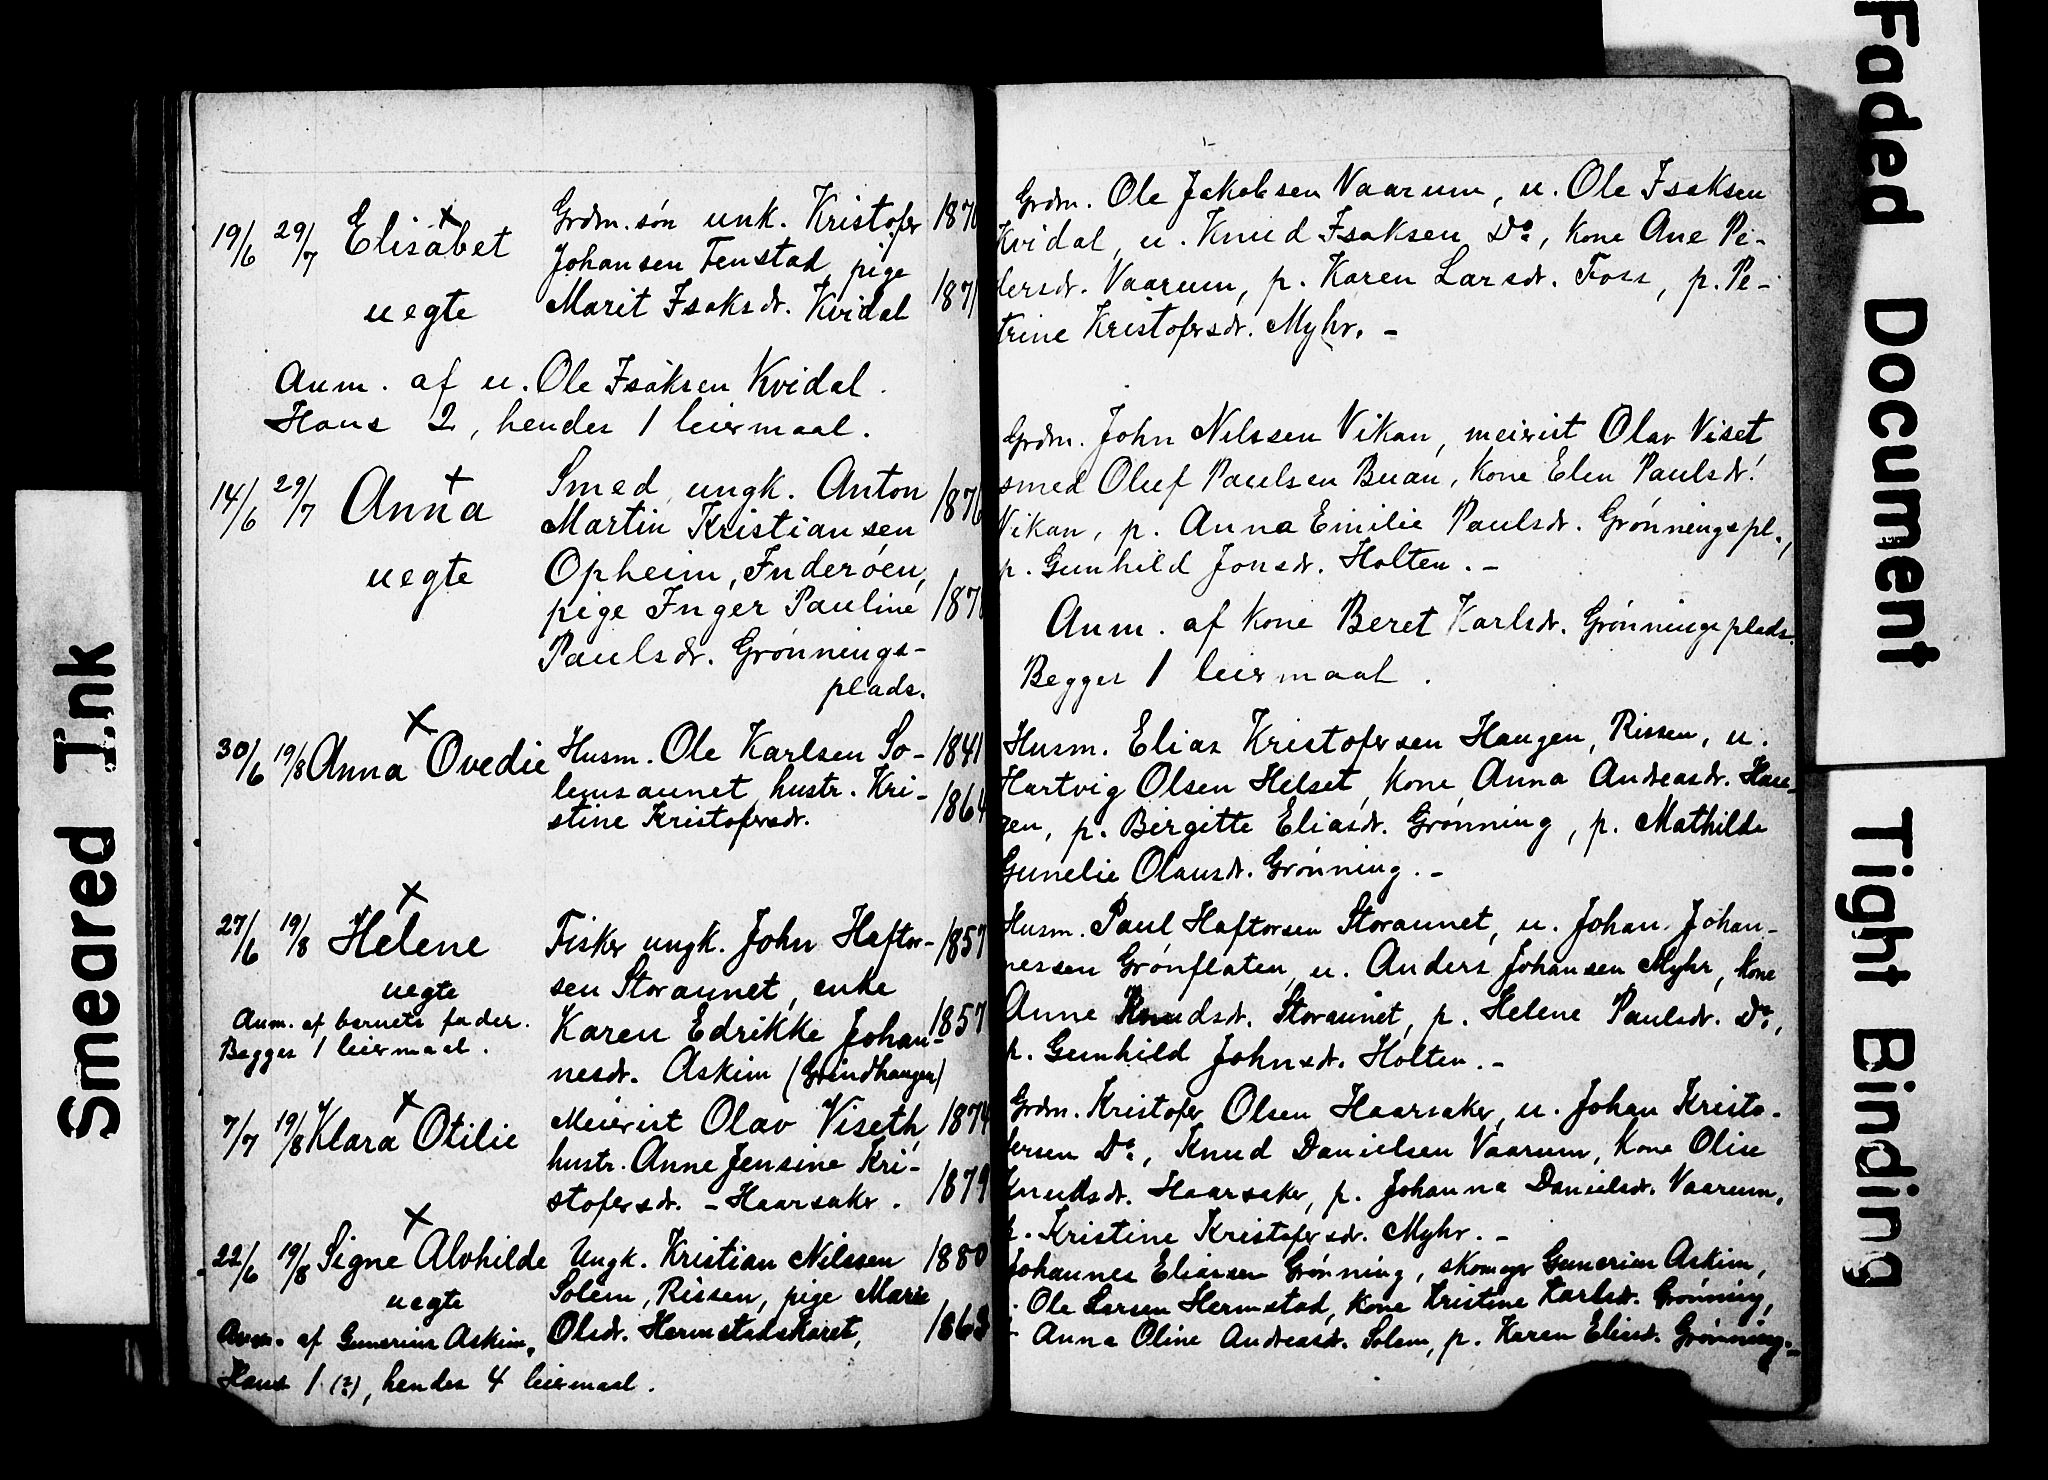 19/6 29/7 Elisabet
uegte
Grdm. søn unk. Kristofer
Johansen Fenstad, pige
Marit Isaksdr. Kvidal
187
187
Anm. af u. Ole Isaksen Kvidal.
Hans 2, hendes 1 leiermaal.
14/6 29/7 Anna
uegte
Smed, ungk. Anton
Martin Kristiansen
Opheim, Inderøen,
pige Inger Pauline
Paulsdr. Grønnings-
plads.
187
187
30/6 19/8 Anna Ovedie
Husm. Ole Karlsen So-
lemsaunet, hustr. Kri-
stine Kristofersdr.
1841
1864
27/6 19/8 Helene
uegte
Anm. af barnets fader.
Begges 1 leiermaal.
Fisker ungk. John Haftor-
sen Storaunet, enke
Karen Edrikke Johan-
nesdr. Askim (Grindhaugen)
1857
1857
7/7 19/8 Klara Otilie
Meierist Olav Viseth,
hustr. Anne Jensine Kri-
stofersdr. - Haarsaker.
1874
1879
22/6 19/8 Signe Alvhilde
uegte
Anm. af Gunerius Askim,
Hans 1 (?), hendes 4 leiermaal.
Ungk. Kristian Nilssen
Solem, Rissen, pige Marie
Olsdr. Hermstadskaret,
1880
1863
Grdm. Ole Jakobsen Vaarum, u. Ole Isaksen
Kvidal, u. Knud Isaksen Do., kone Ane Pe-
dersdr. Vaarum, p. Karen Larsdr. Foss, p. Pe-
trine Kristofersdr. Myhr. -
Grdm. John Nilssen Vikan, meierist Olav Viset,
smed Oluf Paulsen Buan, kone Elen Paulsdr.
Vikan, p. Anna Emilie Paulsdr. Grønningspl.,
p. Gunhild Jonsdr. Holten. -
Anm. af kone Beret Karlsdr. Grønningsplads.
Begges 1 leiermaal.
Husm. Elias Kristofersen Haugen, Rissen, u.
Hartvig Olsen Helset, kone Anna Andreasdr. Hau-
gen, p. Birgitte Eliasdr. Grønning, p. Mathilde
Gunelie Olausdr. Grønning. -
Husm. Paul Haftorsen Storaunet, u. Johan Johan-
nessen Grønflaten, u. Anders Johansen Myhr, kone
Anne Knudsdr. Storaunet, p. Helene Paulsdr. Do.,
p. Gunhild Johnsdr. Holten. -
Grdm. Kristofer Olsen Haarsaker, u. Johan Kristo-
fersen Do., Knud Danielsen Vaarum, kone Olise
Knudsdr. Haarsaker, p. Johanna Danielsdr. Vaarum,
p. Kristine Kristofersdr. Myhr. -
Johannes Eliassen Grønning, skomager Gunerius Askim,
Ole Larsen Hermstad, kone Kristine Karlsdr. Grønning,
Anna Oline Andreasdr. Solem, p. Karen Eliasdr. Grønning. -
Smeared Ink
Faded Document
Tight Binding